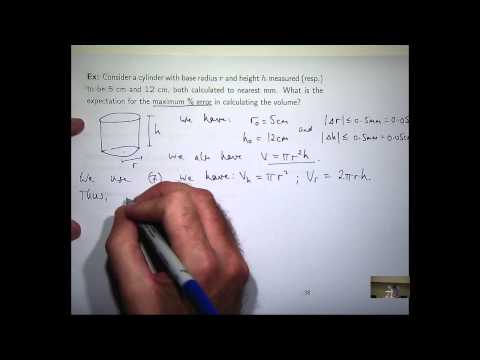 Ex: Consider a cylinder with base radius r and height h measured (resp.)
to be 5 cm and 12 cm, both calculated to nearest mm. What is the
expectation for the maximum % error in calculating the volume?
We have: r₀ = 5cm |Δr| ≤ 0.5mm = 0.05
h₀ = 12cm and |Δh| ≤ 0.5mm = 0.05
h
r
We also have V = πr²h.
We use (7). We have: Vₕ = πr² ; Vᵣ = 2πrh.
Thus,